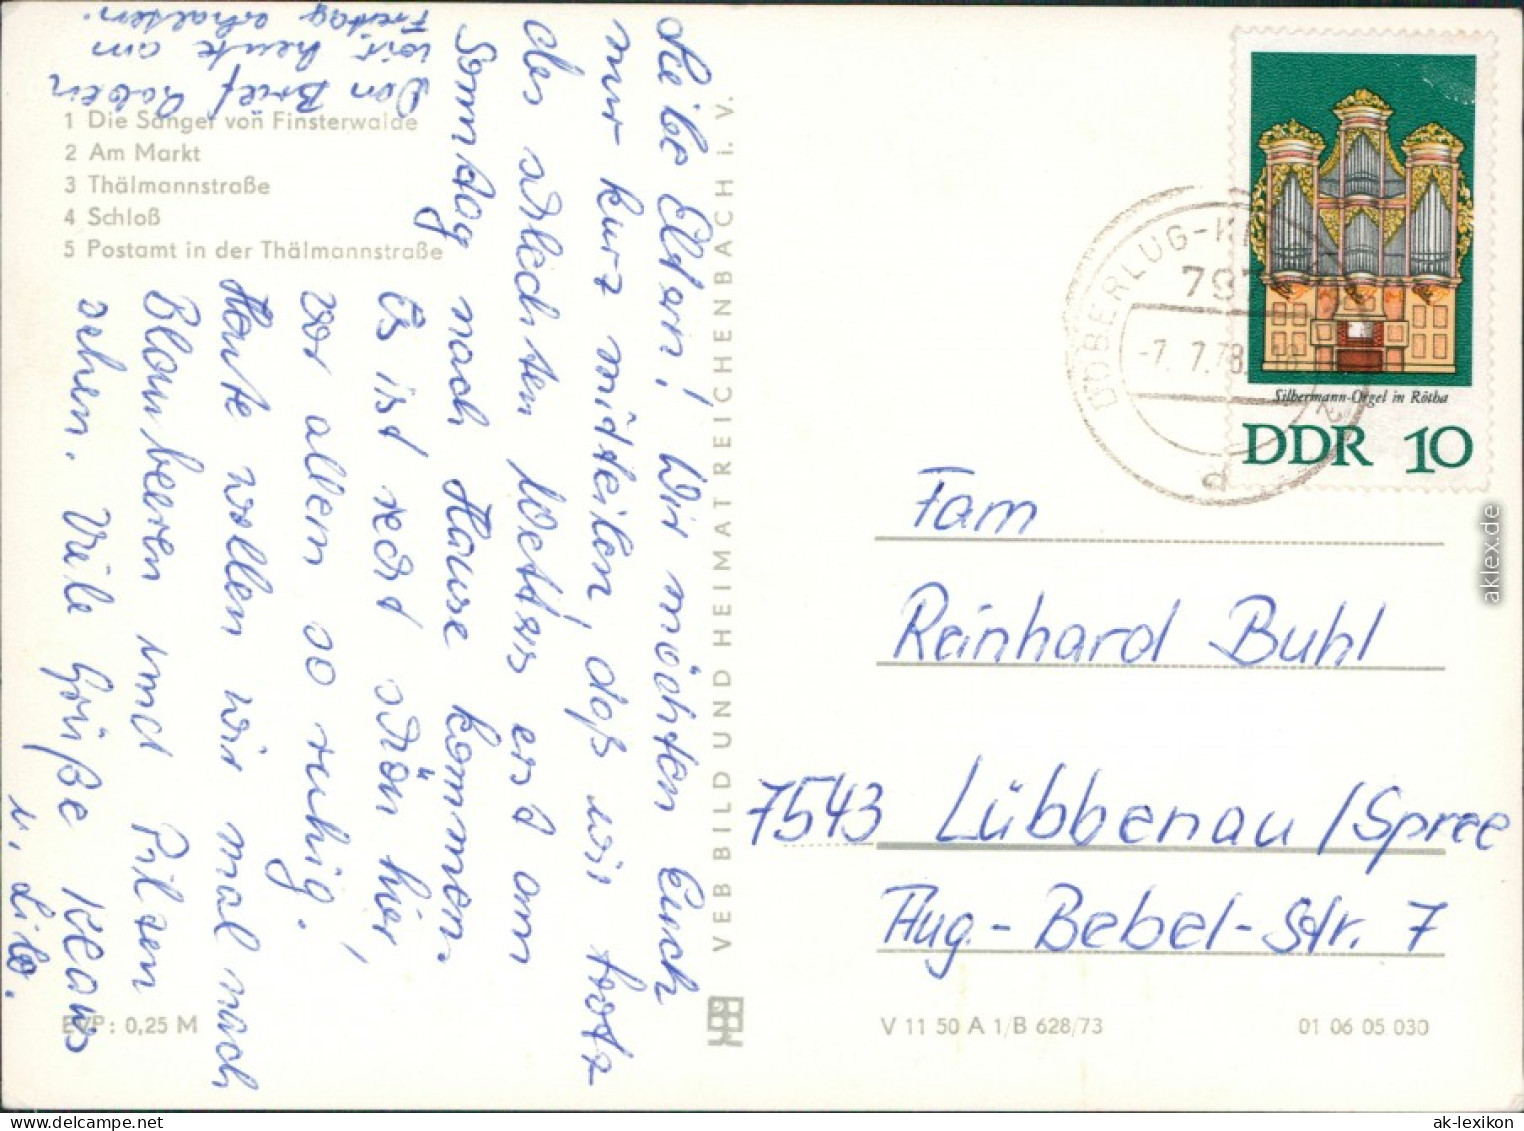 Liebe Eltern! Wir möchten Euch
nur kurz mitteilen, daß wir trotz
des schlechten Wetters erst am
Sonntag nach Hause kommen.
Es ist recht schön hier,
vor allem so ruhig.
Heute wollen wir mal nach
Blaubeeren und Pilzen
sehen. Viele Grüße Klaus
u. Lilo.
Den Brief haben
wir heute am
Freitag erhalten.
1 Die Sänger von Finsterwalde
2 Am Markt
3 Thälmannstraße
4 Schloß
5 Postamt in der Thälmannstraße
EVP: 0,25 M
VEB BILD UND HEIMAT REICHENBACH i. V.
DOBERLUG-KI
797
-7. 7.78.
d
Silbermann-Orgel in Rötha
DDR 10
Fam
Reinhard Buhl
7543 Lübbenau/Spree
Aug.-Bebel-Str. 7
V 11 50 A 1/B 628/73
01 06 05 030
aklex.de
ak-lexikon